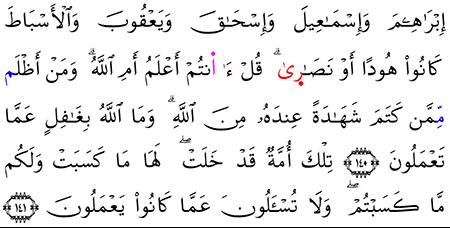 إِبْرَٰهِـۧمَ وَإِسْمَـٰعِيلَ وَإِسْحَـٰقَ وَيَعْقُوبَ وَٱلْأَسْبَاطَ
كَانُوا۟ هُودًا أَوْ نَصَـٰرَىٰ ۗ قُلْ ءَا۬نتُمْ أَعْلَمُ أَمِ ٱللَّهُ ۗ وَمَنْ أَظْلَم
مِّمَّن كَتَمَ شَهَـٰدَةً عِندَهُۥ مِنَ ٱللَّهِ ۗ وَمَا ٱللَّهُ بِغَـٰفِلٍ عَمَّا
تَعْمَلُونَ ﴿١٤٠﴾ تِلْكَ أُمَّةٌ قَدْ خَلَتْ ۖ لَهَا مَا كَسَبَتْ وَلَكُم
مَّا كَسَبْتُمْ ۖ وَلَا تُسْـَٔلُونَ عَمَّا كَانُوا۟ يَعْمَلُونَ ﴿١٤١﴾